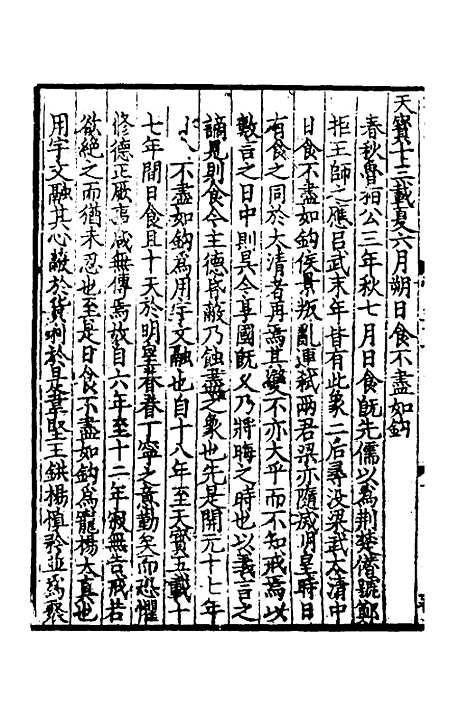 天寶十三載夏六月朔日食不盡如鈎
春秋魯桓公三年秋七月日食既先儒以爲荆楚僭號鄭
拒王師之應呂武末年皆有此象二后尋没梁武太清中
日食不盡如鈎侯景叛亂連弒兩君梁亦隨滅明皇時日
有食之同於大清者再焉其變不亦大乎而不知戒焉以
數言之日中則昃今享國既乂乃將晦之時也以義言之
謫見則食今主德昏蔽乃蝕盡之象也先是開元十七年
不盡如鈎爲用宇文融也自十八年至天寶五載十
七年間日食且十天於明皇眷眷丁寧之意勤矣而恐懼
修德正厥事咸無傳焉故自六年至十二年寂無告戒若
欲絶之而猶未忍也至是日食不盡如鈎爲寵楊太真也
用宇文融其心蔽於貨利於是韋堅王鉷楊慎矜並爲聚